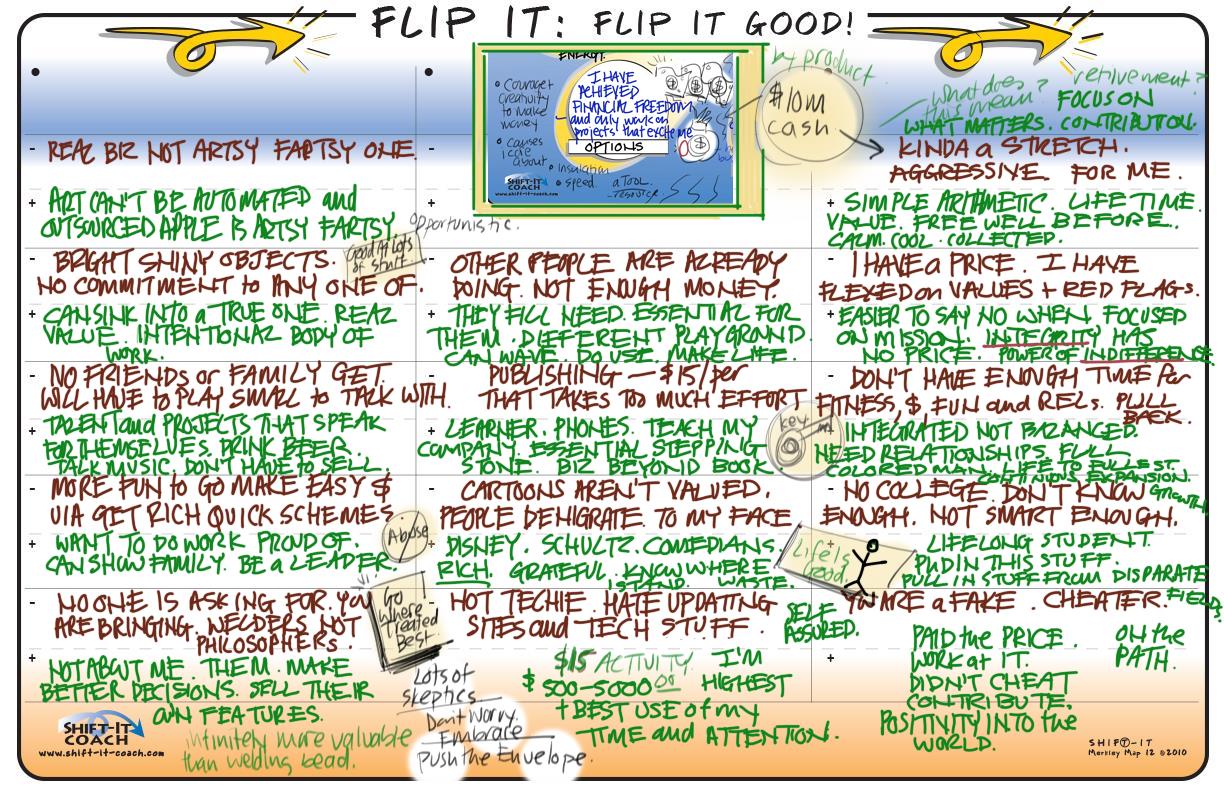 FLIP IT: FLIP IT GOOD!
- REAL BIZ NOT ARTSY FARTSY ONE.
+ ART CAN'T BE AUTOMATED and
OUTSOURCED APPLE IS ARTSY FARTSY.
- BRIGHT SHINY OBJECTS.
NO COMMITMENT to ANY ONE OF.
Good at lots
of stuff.
Opportunistic.
+ CAN SINK INTO a TRUE ONE. REAL
VALUE. INTENTIONAL BODY OF
WORK.
- NO FRIENDS or FAMILY GET.
WILL HAVE to PLAY SMALL to TALK WITH.
+ TALENT and PROJECTS THAT SPEAK
FOR THEMSELVES. DRINK BEER.
TALK MUSIC. DON'T HAVE to SELL.
- MORE FUN to GO MAKE EASY $
VIA GET RICH QUICK SCHEMES
Abuse
+ WANT TO DO WORK PROUD OF.
CAN SHOW FAMILY. BE a LEADER.
- NO ONE IS ASKING FOR. YOU
ARE BRINGING. WELDERS NOT
PHILOSOPHERS.
Go
Where
Treated
Best
+ NOT ABOUT ME. THEM. MAKE
BETTER DECISIONS. SELL THEIR
OWN FEATURES.
infinitely more valuable
than welding bead.
SHIFT-IT
COACH
www.shift-it-coach.com
ENERGY.
• Courage &
creativity
to make
money
• Causes
I care
about
I HAVE
ACHIEVED
FINANCIAL FREEDOM
and only work on
projects that excite me
OPTIONS
• Insulation
• speed
a TOOL.
resource
$ $ $
$
SHIFT-IT
COACH
www.shift-it-coach.com
by product
$10m
cash
- OTHER PEOPLE ARE ALREADY
DOING. NOT ENOUGH MONEY.
+ THEY FILL NEED. ESSENTIAL FOR
THEM. DIFFERENT PLAYGROUND
CAN WAVE. DO USE. MAKE LIFE.
- PUBLISHING — $15/per
THAT TAKES TOO MUCH EFFORT
+ LEARNER. PHONES. TEACH MY
COMPANY. ESSENTIAL STEPPING
STONE. BIZ BEYOND BOOK.
key
- CARTOONS AREN'T VALUED.
PEOPLE DENIGRATE TO MY FACE
+ DISNEY. SCHULTZ. COMEDIANS.
RICH. GRATEFUL. KNOW WHERE
I STAND. WASTE.
Life is
Good
- NOT TECHIE. HATE UPDATING
SITES and TECH STUFF.
SELF
ASSURED.
+ $15 ACTIVITY. I'M
$500-5000 HIGHEST
+ BEST USE of my
TIME and ATTENTION.
Lots of
skeptics
Don't Worry.
Embrace
Push the Envelope.
What does
this mean?
retirement?
FOCUS ON
WHAT MATTERS. CONTRIBUTION.
KINDA a STRETCH.
AGGRESSIVE FOR ME.
+ SIMPLE ARITHMETIC. LIFE TIME
VALUE. FREE WELL BEFORE.
CALM. COOL. COLLECTED.
- I HAVE a PRICE. I HAVE
FLEXED on VALUES + RED FLAGS.
+ EASIER TO SAY NO WHEN FOCUSED
ON MISSION. INTEGRITY HAS
NO PRICE. POWER OF INDIFFERENSE
- DON'T HAVE ENOUGH TIME for
FITNESS, $, FUN and RELs. PULL
BACK.
+ INTEGRATED NOT BALANCED.
NEED RELATIONSHIPS. FULL
COLORED MAN. LIFE TO FULLEST.
CONTINUOUS EXPANSION.
GROWTH.
- NO COLLEGE. DON'T KNOW
ENOUGH. NOT SMART ENOUGH.
+ LIFELONG STUDENT.
PhD IN THIS STUFF.
PULL IN STUFF FROM DISPARATE
FIELDS.
- YOU ARE a FAKE. CHEATER.
+ PAID the PRICE.
WORK at IT.
DIDN'T CHEAT
CONTRIBUTE.
POSITIVITY INTO the
WORLD.
ON the
PATH.
SHIFT-IT
Merkley Map 12 ©2010